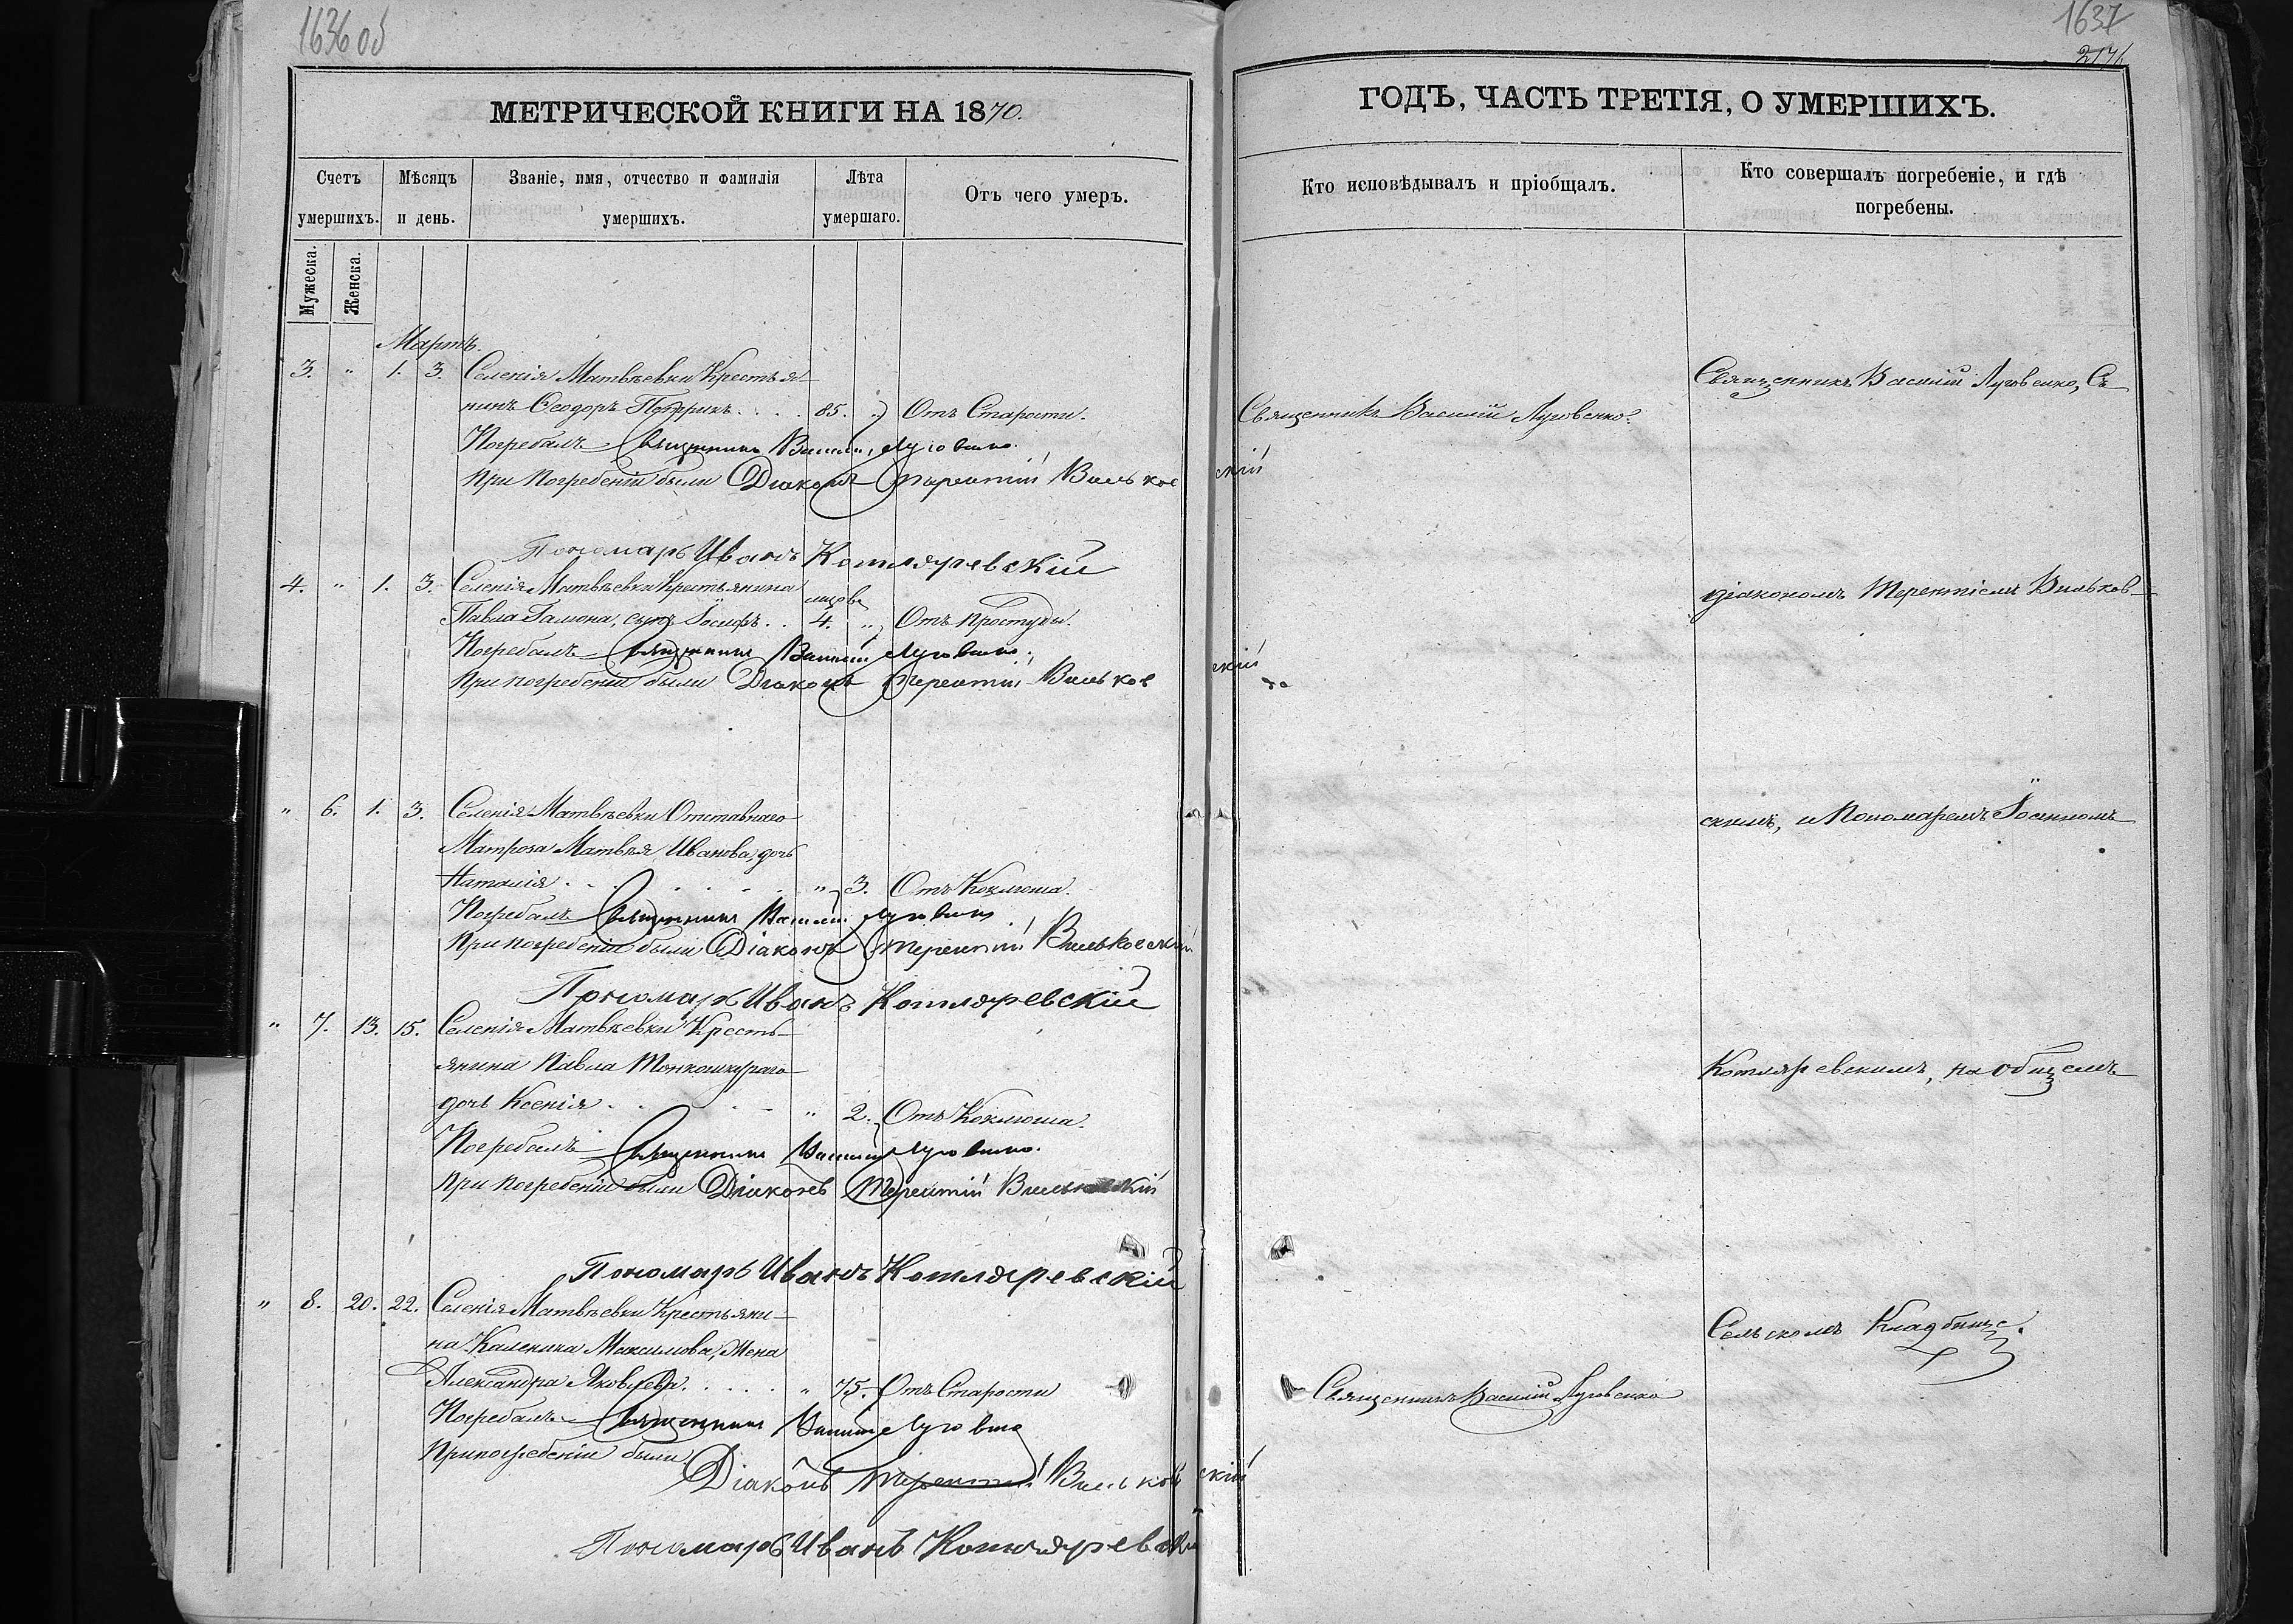 1636 об
МЕТРИЧЕСКОЙ КНИГИ НА 1870.
Счетъ умершихъ.
Мѣсяцъ и день.
Званіе, имя, отчество и фамилія умершихъ.
Лѣта умершаго.
Отъ чего умеръ.
Мужеска.
Женска.
Мартъ.
3. " 1. 3. Селенія Матвѣевки Крестья-
нинъ Ѳеодоръ 85. " Отъ Старости.
Погребалъ Священникъ Василій Луговенко.
При погребеніи были Діаконъ Терентій Вильковскій
Пономарь Иванъ Котляревскій
4. " 1. 3. Селенія Матвѣевки Крестьянина
Павла Галиона, сынъ Іосифъ . . 4. " Отъ Простуды.
Погребалъ Священникъ Василій Луговенко.
При погребеніи были Діаконъ Терентій Вильковскій
" 6. 1. 3. Селенія Матвѣевки Отставнаго
Матроза Матвѣя Иванова, дочь
Наталія . . . " 3. Отъ Коклюша.
Погребалъ Священникъ Василій Луговенко
При погребеніи были Діаконъ Терентій Вильковскій
Пономарь Иванъ Котляревскій
" 7. 13. 15. Селенія Матвѣевки Кресть-
янина Павла Тонкошкураго
дочь Ксенія . . . " 2. Отъ Коклюша.
Погребалъ Священникъ Василій Луговенко.
При погребеніи были Діаконъ Терентій Вильковскій
Пономарь Иванъ Котляревскій
" 8. 20. 22. Селенія Матвѣевки Крестьяни-
на Каленика Максимова, Жена
Александра Яковлева. . . . " 75. Отъ Старости
Погребалъ Священникъ Василій Луговенко
При погребеніи были
Діаконъ Терентій Вильковскій
Пономарь Иванъ Котляревскій
1637
2176
ГОДЪ, ЧАСТЬ ТРЕТІЯ, О УМЕРШИХЪ.
Кто исповѣдывалъ и пріобщалъ.
Кто совершалъ погребеніе, и гдѣ погребены.
Священникъ Василій Луговенко, Съ
Священникъ Василій Луговенко.
діакономъ Терентіемъ Вильков-
скимъ, и Пономаремъ Іоанномъ
Котляревскимъ, на общемъ
Сельскомъ Кладбище.
Священникъ Василій Луговенко